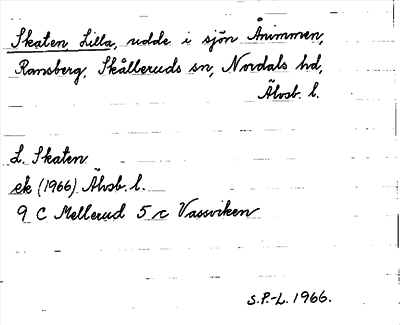 Skaten, Lilla, udde i sjön Ånimmen,
Ransberg, Skålleruds sn, Nordals hd,
Älvsb. l.
L. Skaten
ek (1966) Älvsb. l.
9 C Mellerud 5 c Vassviken
S.P.-L. 1966.